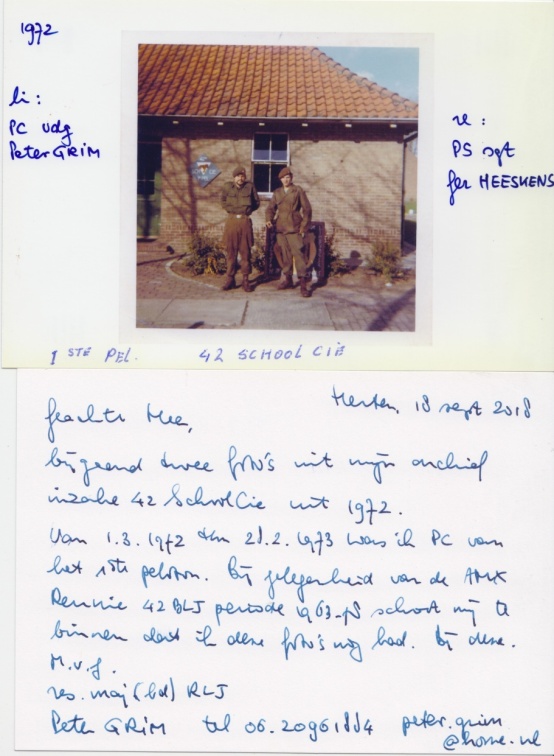 1972
li:
PC vdg
Peter GRIM
re:
PS sgt
fer HEESKENS
1 STE PEL. 42 SCHOOL CIE
Herten, 18 sept 2018
geachte Hee,
bijgaand twee foto's uit mijn archief
inzake 42 SchoolCie uit 1972.
Van 1.3.1972 t/m 28.2.1973 was ik PC van
het 1ste peloton. Bij gelegenheid van de AMX
Reunie 42 BLJ periode 1963-78 schoot mij te
binnen dat ik deze foto's nog had. Bij deze.
M.v.g.
res. maj (bd) RLJ
Peter GRIM tel 06.20961884 peter.grim
@home.nl